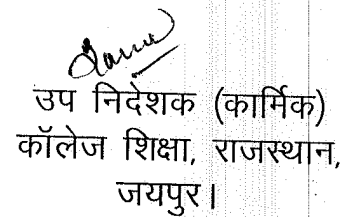 उप निदेशक (कार्मिक)
कॉलेज शिक्षा, राजस्थान,
जयपुर।